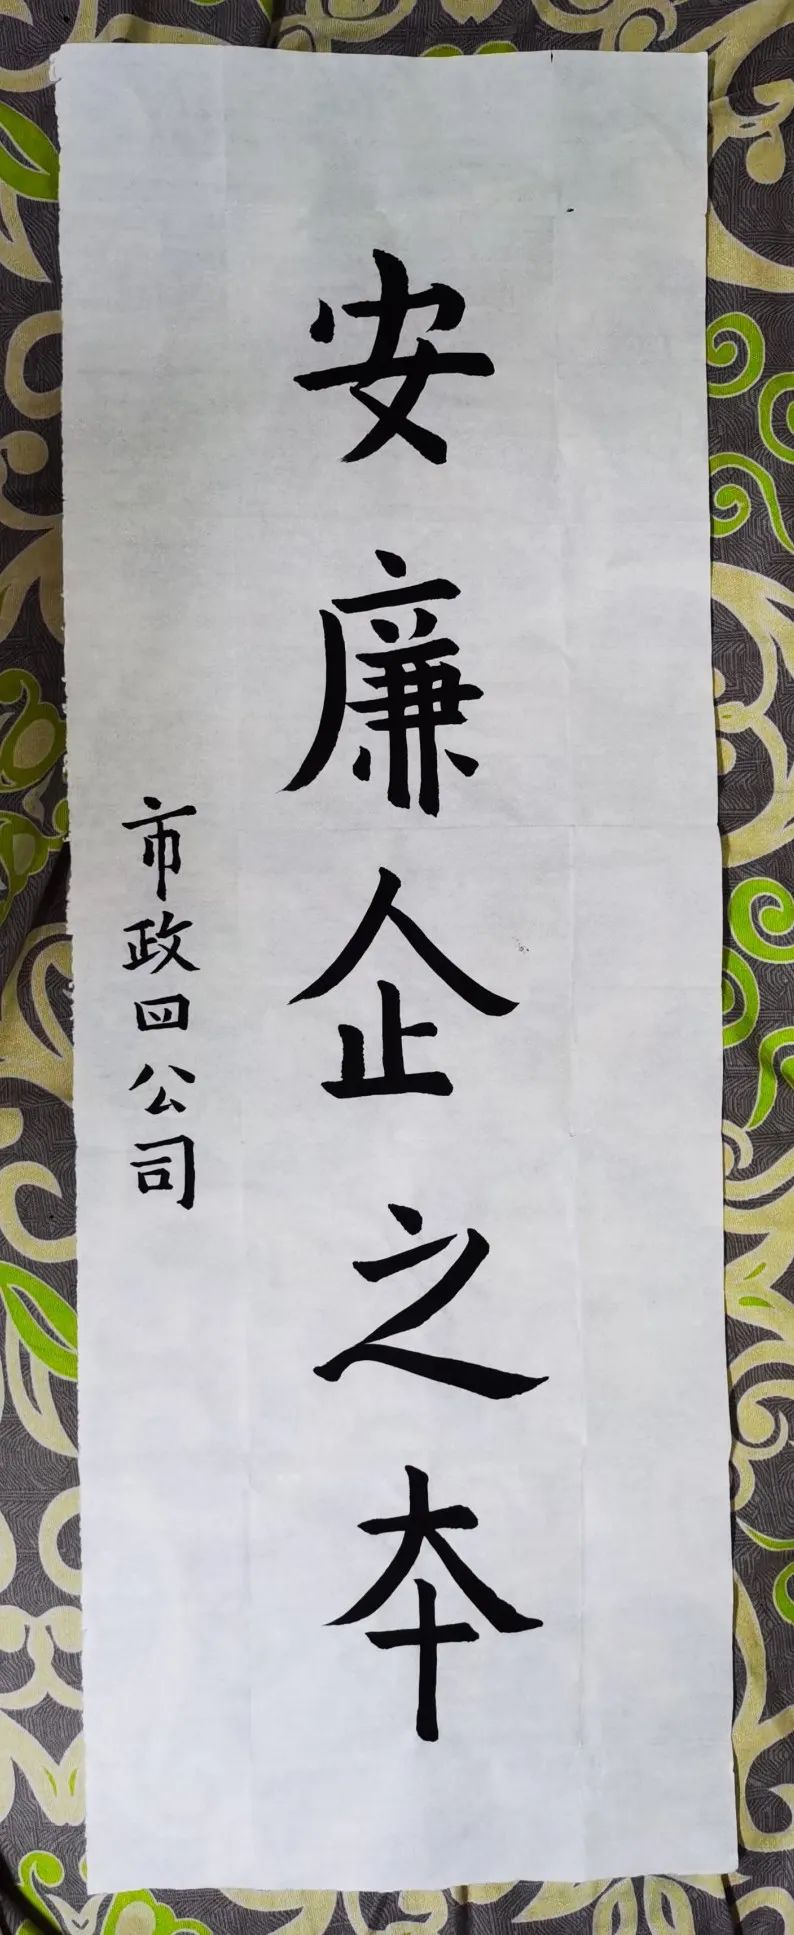 安廉企之本
市政四公司